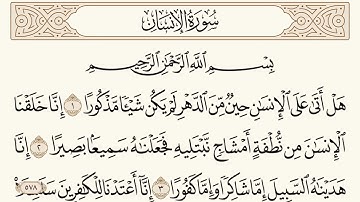 سُورَةُ الإِنسَانِ
بِسْمِ ٱللَّهِ ٱلرَّحْمَٰنِ ٱلرَّحِيمِ
هَلْ أَتَىٰ عَلَى ٱلْإِنسَٰنِ حِينٌ مِّنَ ٱلدَّهْرِ لَمْ يَكُن شَيْـًٔا مَّذْكُورًا ١ إِنَّا خَلَقْنَا
ٱلْإِنسَٰنَ مِن نُّطْفَةٍ أَمْشَاجٍ نَّبْتَلِيهِ فَجَعَلْنَٰهُ سَمِيعًۢا بَصِيرًا ٢ إِنَّا
هَدَيْنَٰهُ ٱلسَّبِيلَ إِمَّا شَاكِرًا وَإِمَّا كَفُورًا ٣ إِنَّآ أَعْتَدْنَا لِلْكَٰفِرِينَ سَلَٰسِلَا۟
٥٧٨